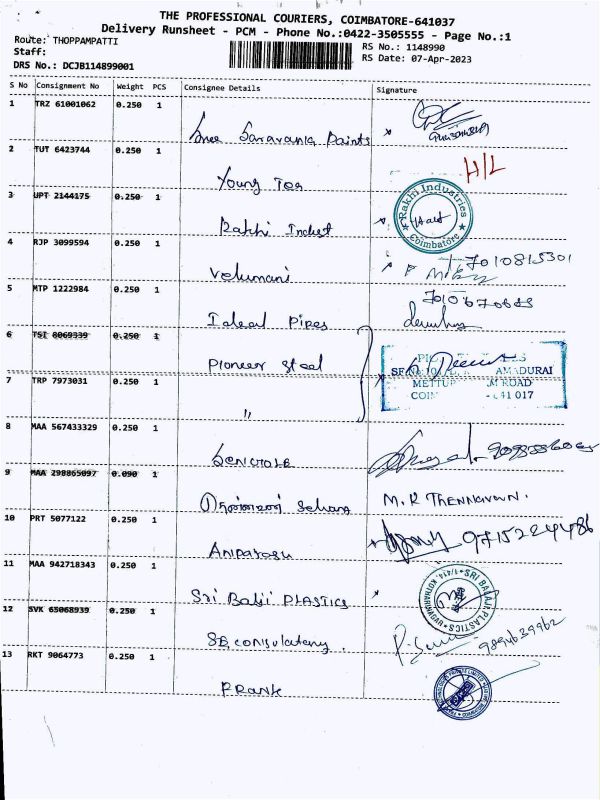 THE PROFESSIONAL COURIERS, COIMBATORE-641037
Delivery Runsheet - PCM - Phone No.:0422-3505555 - Page No.:1
Route: THOPPAMPATTI
RS No.: 1148990
Staff:
RS Date: 07-Apr-2023
DRS No.: DCJB114899001
S No Consignment No Weight PCS Consignee Details Signature
1 TRZ 61001062 0.250 1
Sree Saravana Paints
2 TUT 6423744 0.250 1
H/L
Young Tex
3 UPT 2144175 0.250 1
Rakhi Indust
Rakhi Industries
Coimbatore
4 RJP 3099594 0.250 1
Velumani
7010815301
5 MTP 1222984 0.250 1
Ideal Pipes
6 TSI 8069339 0.250 1
Pioneer Steel
7 TRP 7973031 0.250 1
"
AMADURAI
ROAD
641 017
8 MAA 567433329 0.250 1
9 MAA 298865097 0.090 1
M.R THENNAVAN.
10 PRT 5077122 0.250 1
9715224486
11 MAA 942718343 0.250 1
Sri Balji PLASTICS
SRI BALAJI PLASTICS
12 SVK 65068939 0.250 1
SB consulatany.
9894639962
13 RKT 9064773 0.250 1
PRANK